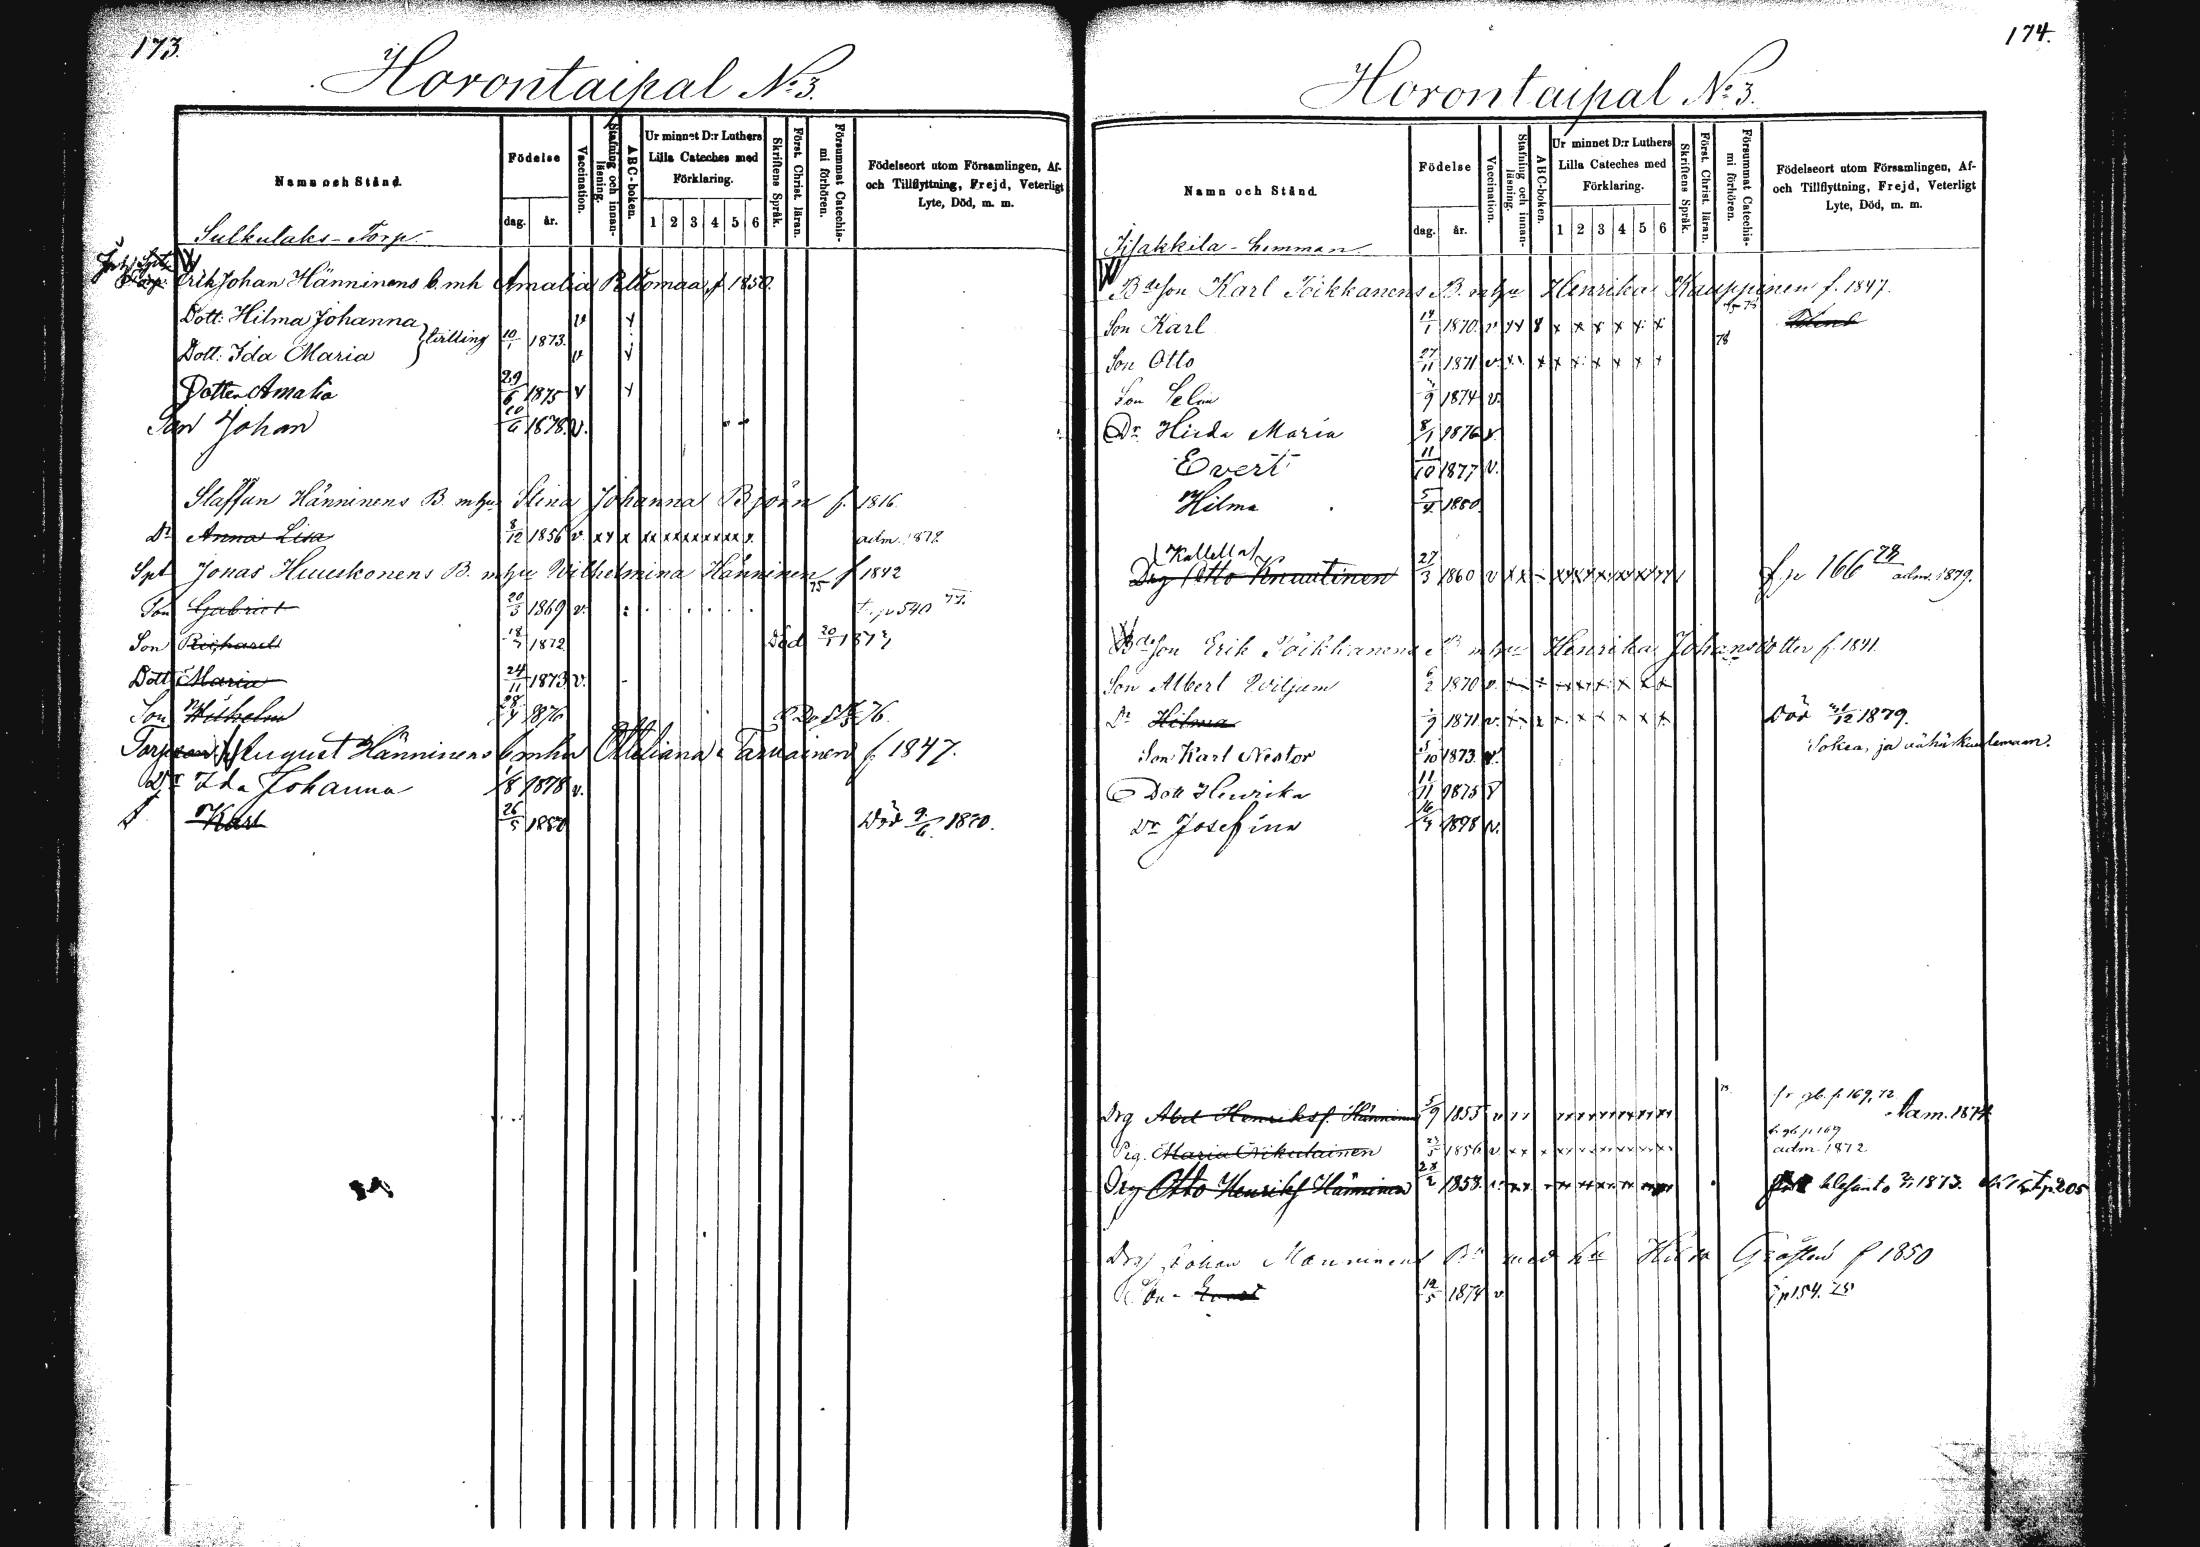 173.
Horontaipal No 3.
Namn och Stånd.
Födelse
dag.
år.
Vaccination.
Stafning och innan-läsning.
ABC-boken.
Ur minnet D:r Luthers
Lilla Cateches med
Förklaring.
1 2 3 4 5 6
Skriftens Språk.
Först. Christ. läran.
Försummat Catechis-mi förhören.
Födelseort utom Församlingen, Af-
och Tillflyttning, Frejd, Veterligt
Lyte, Död, m. m.
Sulkulaks-Torp.
Erik Johan Hänninens b. mh Amalia Peltomaa f 1850.
Dott: Hilma Johanna v
tvilling 10/1 1873.
Dott: Ida Maria v
Dotter Amalia 29/6 1875 v
Son Johan 20/6 1878. v.
Staffan Hänninens B. m hu Stina Johanna Björn f. 1816.
Dr Anna Lisa 8/12 1856 v xx x xx xx xx xx x. adm. 1872
Spt Jonas Huuskonens B. m hu Wilhelmina Hänninen f 1842
75
Son Gabriel 20/3 1869 v. t. p 540 77.
Son Richard 1872 Död 1873
Dott: Maria 24/11 1873 v.
Son Wilhelm 28/4 1876 76.
August Hänninens b m hu Ottiliana Tarvainen f 1847.
Dr Ida Johanna 1/8 1878 v.
Karl 26/5 1880 Död 9/6 1880.
174.
Horontaipal No 3.
Namn och Stånd
Födelse
dag.
år.
Vaccination.
Stafning och innan-läsning.
ABC-boken.
Ur minnet D:r Luthers
Lilla Cateches med
Förklaring.
1 2 3 4 5 6
Skriftens Språk.
Först. Christ. läran.
Försummat Catechis-mi förhören.
Födelseort utom Församlingen, Af-
och Tillflyttning, Frejd, Veterligt
Lyte, Död, m. m.
Iisakkila-hemman
Bdeson Karl Poikkanens B. m hu Henrika Kauppinen f. 1847.
Son Karl 14/1 1870. v xx x x x x x x x
Son Otto 27/11 1871 v. xx x x x x x x x
78
Son Selim 9 1874 v.
Dr Hilda Maria 8/1 1876 v.
Evert 11/10 1877 v.
Hilma 5/4 1880.
Kallella
Drg Otto Knuutinen 27/3 1860 v xx f. p 166 78 adm. 1879.
Bdeson Erik Poikkanens B m hu Henrika Johansdotter f. 1841.
Son Albert Wiljam 6/2 1870 v.
Dr Hilma 9 1871 v. Död 12 1879.
Sokea, ja vähä kuulemaan.
Son Karl Nestor 5/10 1873. v.
Dott Henrika 11/11 1875 v
Dr Josefina 16 1878 v.
Drg Abel Henriksf. Hänninen 5/9 1855 v fr gb. p. 169, 72 1874
Pig. Maria Nikulainen 23/5 1856 v. fr gb p 169
adm. 1872
Drg Otto Henriksf Hänninen 28/2 1858. 1873. p. 205
Drg Johan Manninens Br med hu f 1850
Son 19/5 1874 v p 154. 75